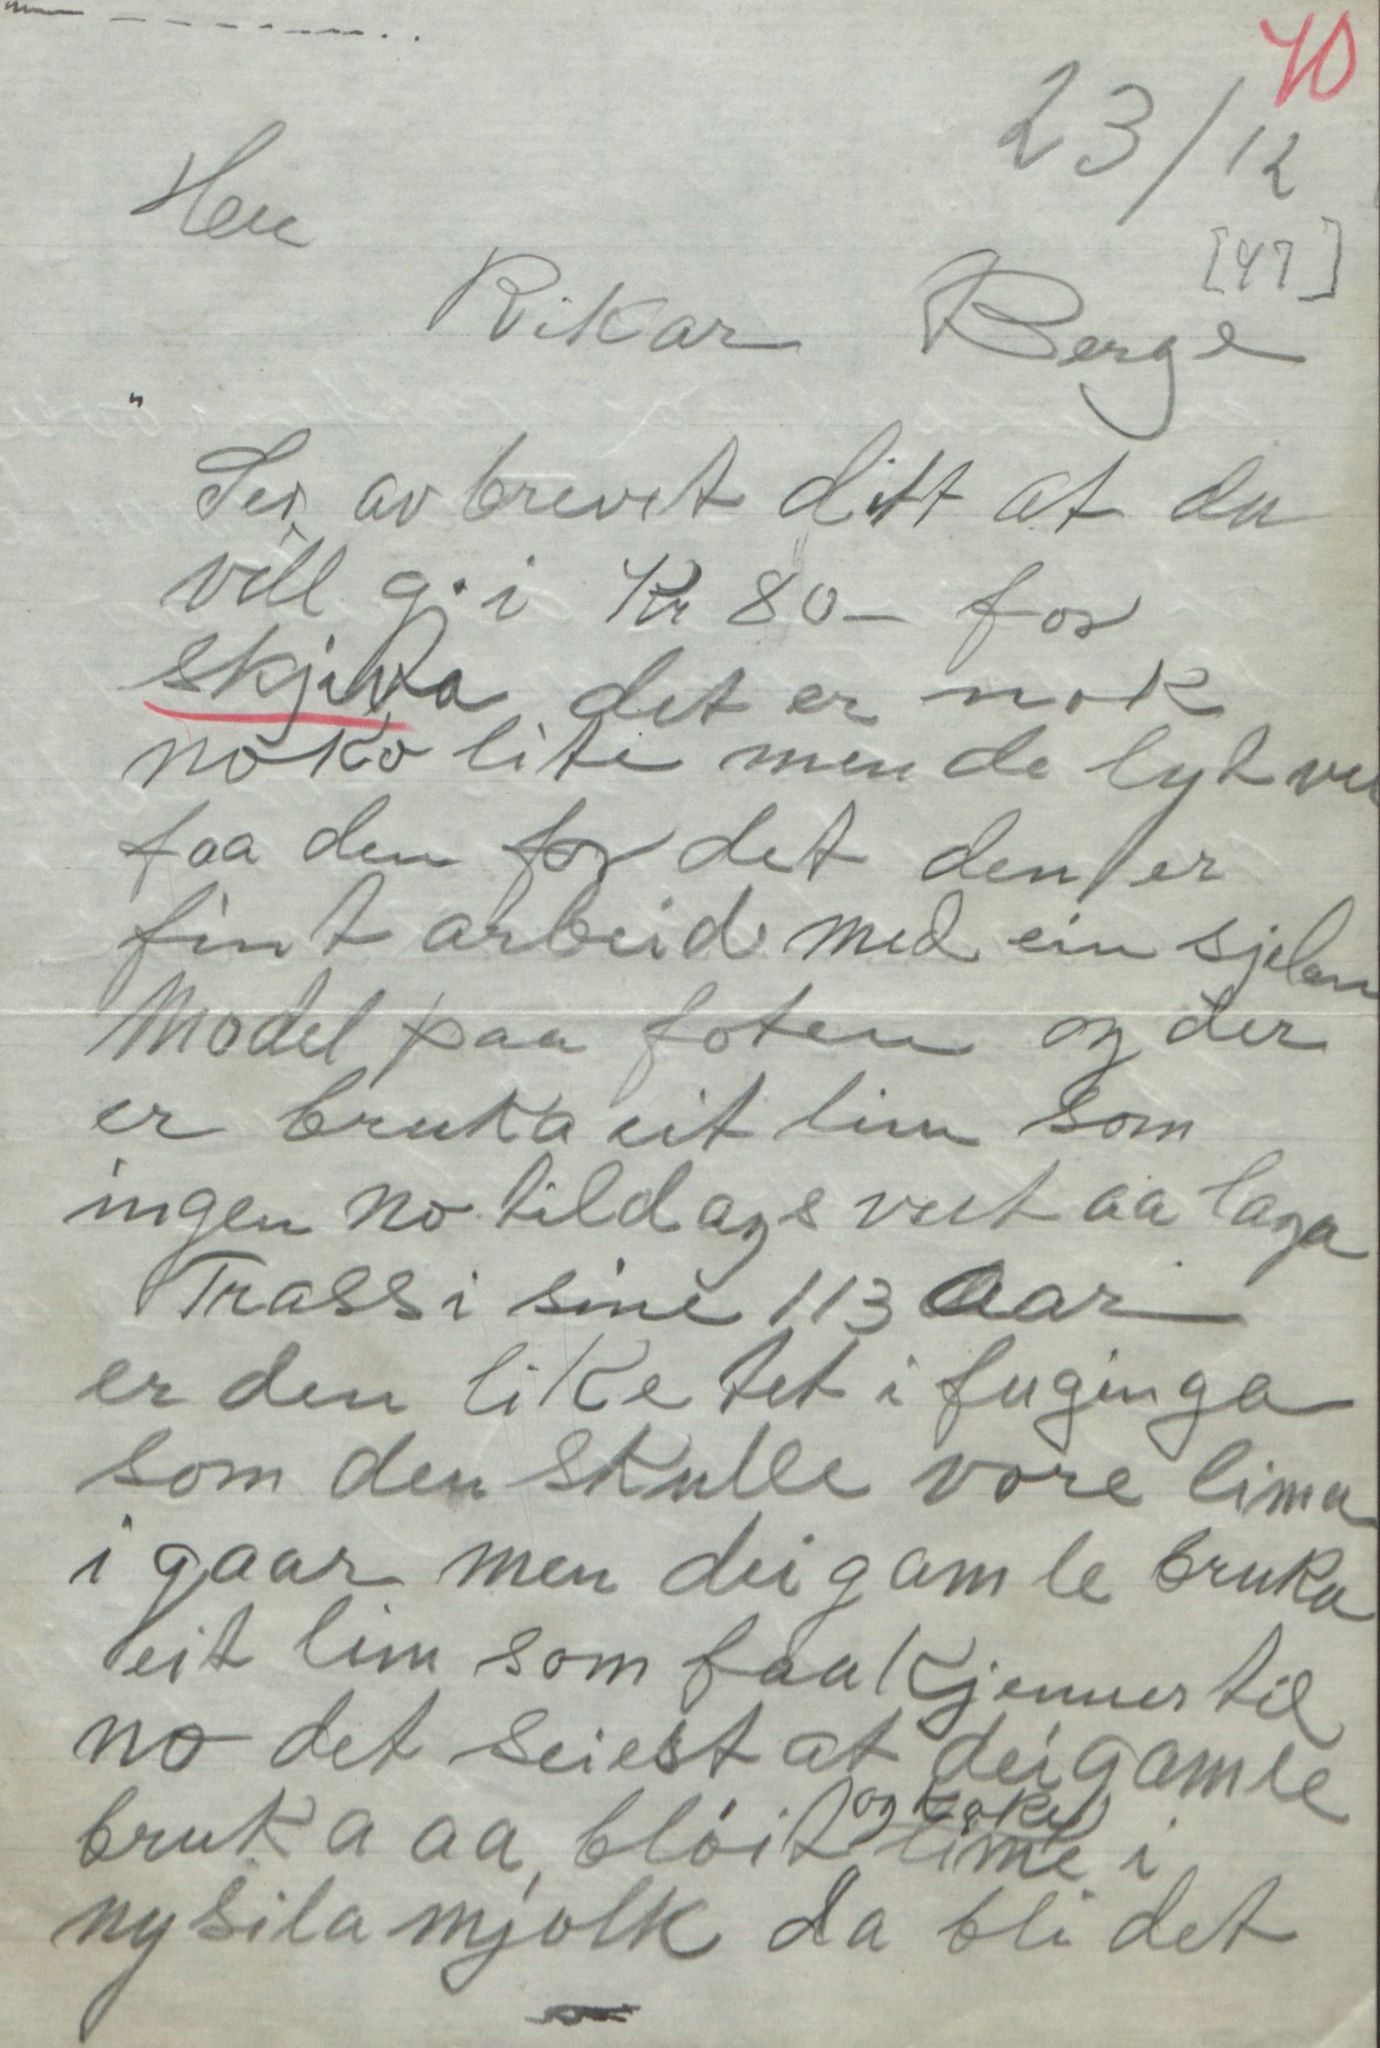 40
23/12
[47]
Herr
Rikar Berge
Ser av brevet ditt at du
vill gi Kr 80 – for
skjiva det er nok
noko lite men de lyt vel
faa den for det den er
fint arbeid med ein sjelen
Model paa foten og der
er bruka eit lim som
ingen no tildags veit aa laga
Trass i sine 113 aar
er den like tet i fuginga
som den skulle vore lima
i gaar men dei gamle bruka
eit lim som faa kjenner til
no det seiest at dei gamle
og koke
bruka aa bløit lime i
nysila mjølk da bli det